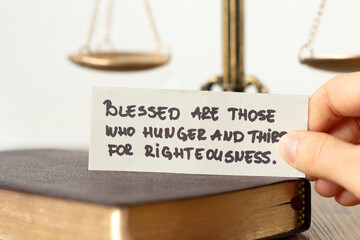 BLESSED ARE THOSE
WHO HUNGER AND THIRS
FOR RIGHTEOUSNESS.